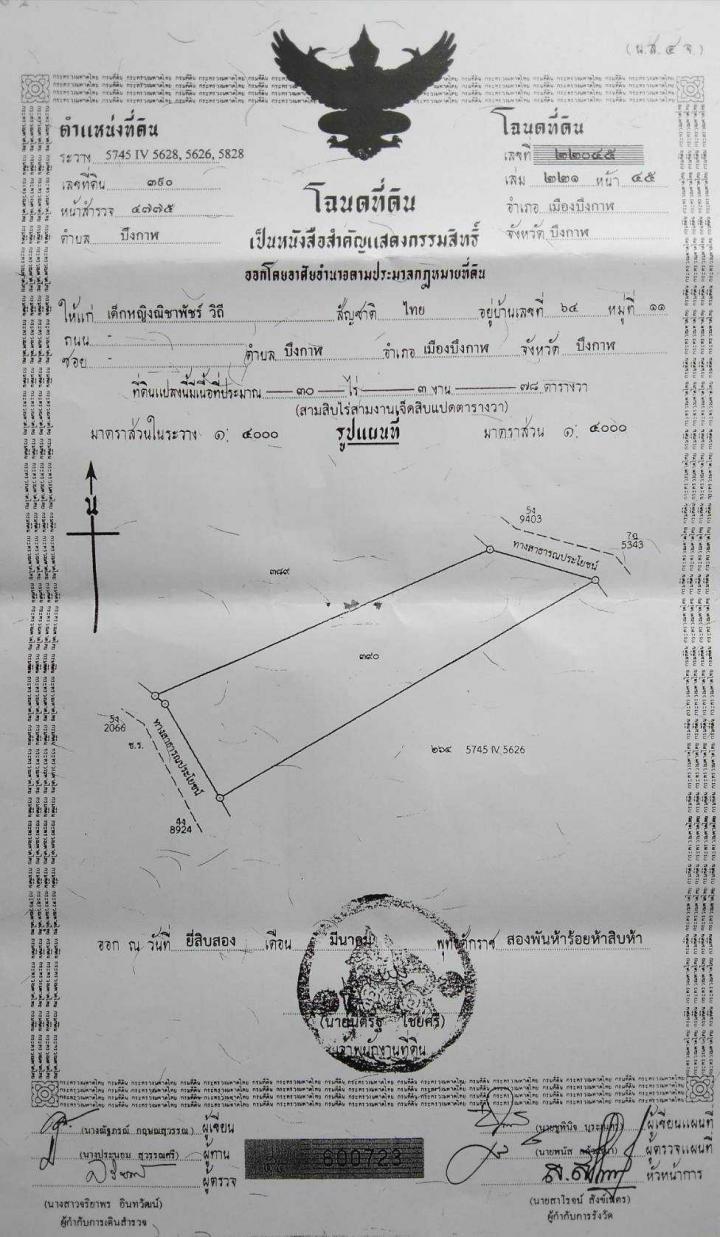 (น.ส. ๔ จ.)
ตำแหน่งที่ดิน
ระวาง 5745 IV 5628, 5626, 5828
เลขที่ดิน ๓๙๐
หน้าสำรวจ ๔๗๗๕
ตำบล บึงกาฬ
โฉนดที่ดิน
เลขที่ ๒๒๐๔๕
เล่ม ๒๒๑ หน้า ๔๕
อำเภอ เมืองบึงกาฬ
จังหวัด บึงกาฬ
โฉนดที่ดิน
เป็นหนังสือสำคัญแสดงกรรมสิทธิ์
ออกโดยอาศัยอำนาจตามประมวลกฎหมายที่ดิน
ให้แก่ เด็กหญิงณิชาพัชร์ วิถี สัญชาติ ไทย อยู่บ้านเลขที่ ๖๔ หมู่ที่ ๑๑
ถนน -
ซอย - ตำบล บึงกาฬ อำเภอ เมืองบึงกาฬ จังหวัด บึงกาฬ
ที่ดินแปลงนี้มีเนื้อที่ประมาณ ๓๐ ไร่ ๓ งาน ๗๘ ตารางวา
(สามสิบไร่สามงานเจ็ดสิบแปดตารางวา)
มาตราส่วนในระวาง ๑: ๔๐๐๐ รูปแผนที่ มาตราส่วน ๑: ๔๐๐๐
น
5ง
9403
7ฉ
5343
ทางสาธารณประโยชน์
๓๘๙
๓๙๐
5ง
2066
ช.ร.
ทางสาธารณประโยชน์
๒๖๔ 5745 IV 5626
4ง
8924
ออก ณ วันที่ ยี่สิบสอง เดือน มีนาคม พุทธศักราช สองพันห้าร้อยห้าสิบห้า
ไชยศรี)
เจ้าพนักงานที่ดิน
(นางณัฐภรณ์ กฤษณสุวรรณ) ผู้เขียน
(นางประนอม สุวรรณศรี) ผู้ทาน
ผู้ตรวจ
(นางสาวจริยาพร อินทวัฒน์)
ผู้กำกับการเดินสำรวจ
600723
ผู้เขียนแผนที่
(นายพนัส ผู้ตรวจแผนที่
หัวหน้าการ
(นายสาโรจน์
ผู้กำกับการรังวัด